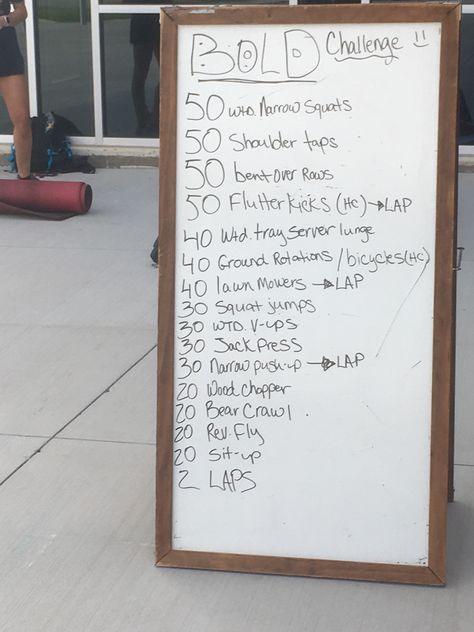 BOLD Challenge !!
50 WTD. Narrow Squats
50 Shoulder taps
50 bent over Rows
50 Flutter kicks (HC) → LAP
40 Wtd. tray server lunge
40 Ground Rotations / bicycles (HC)
40 lawn mowers → LAP
30 Squat jumps
30 WTD. V-ups
30 Jack Press
30 Narrow push-up → LAP
20 Wood Chopper
20 Bear Crawl.
20 Rev. Fly
20 Sit-up
2 LAPS